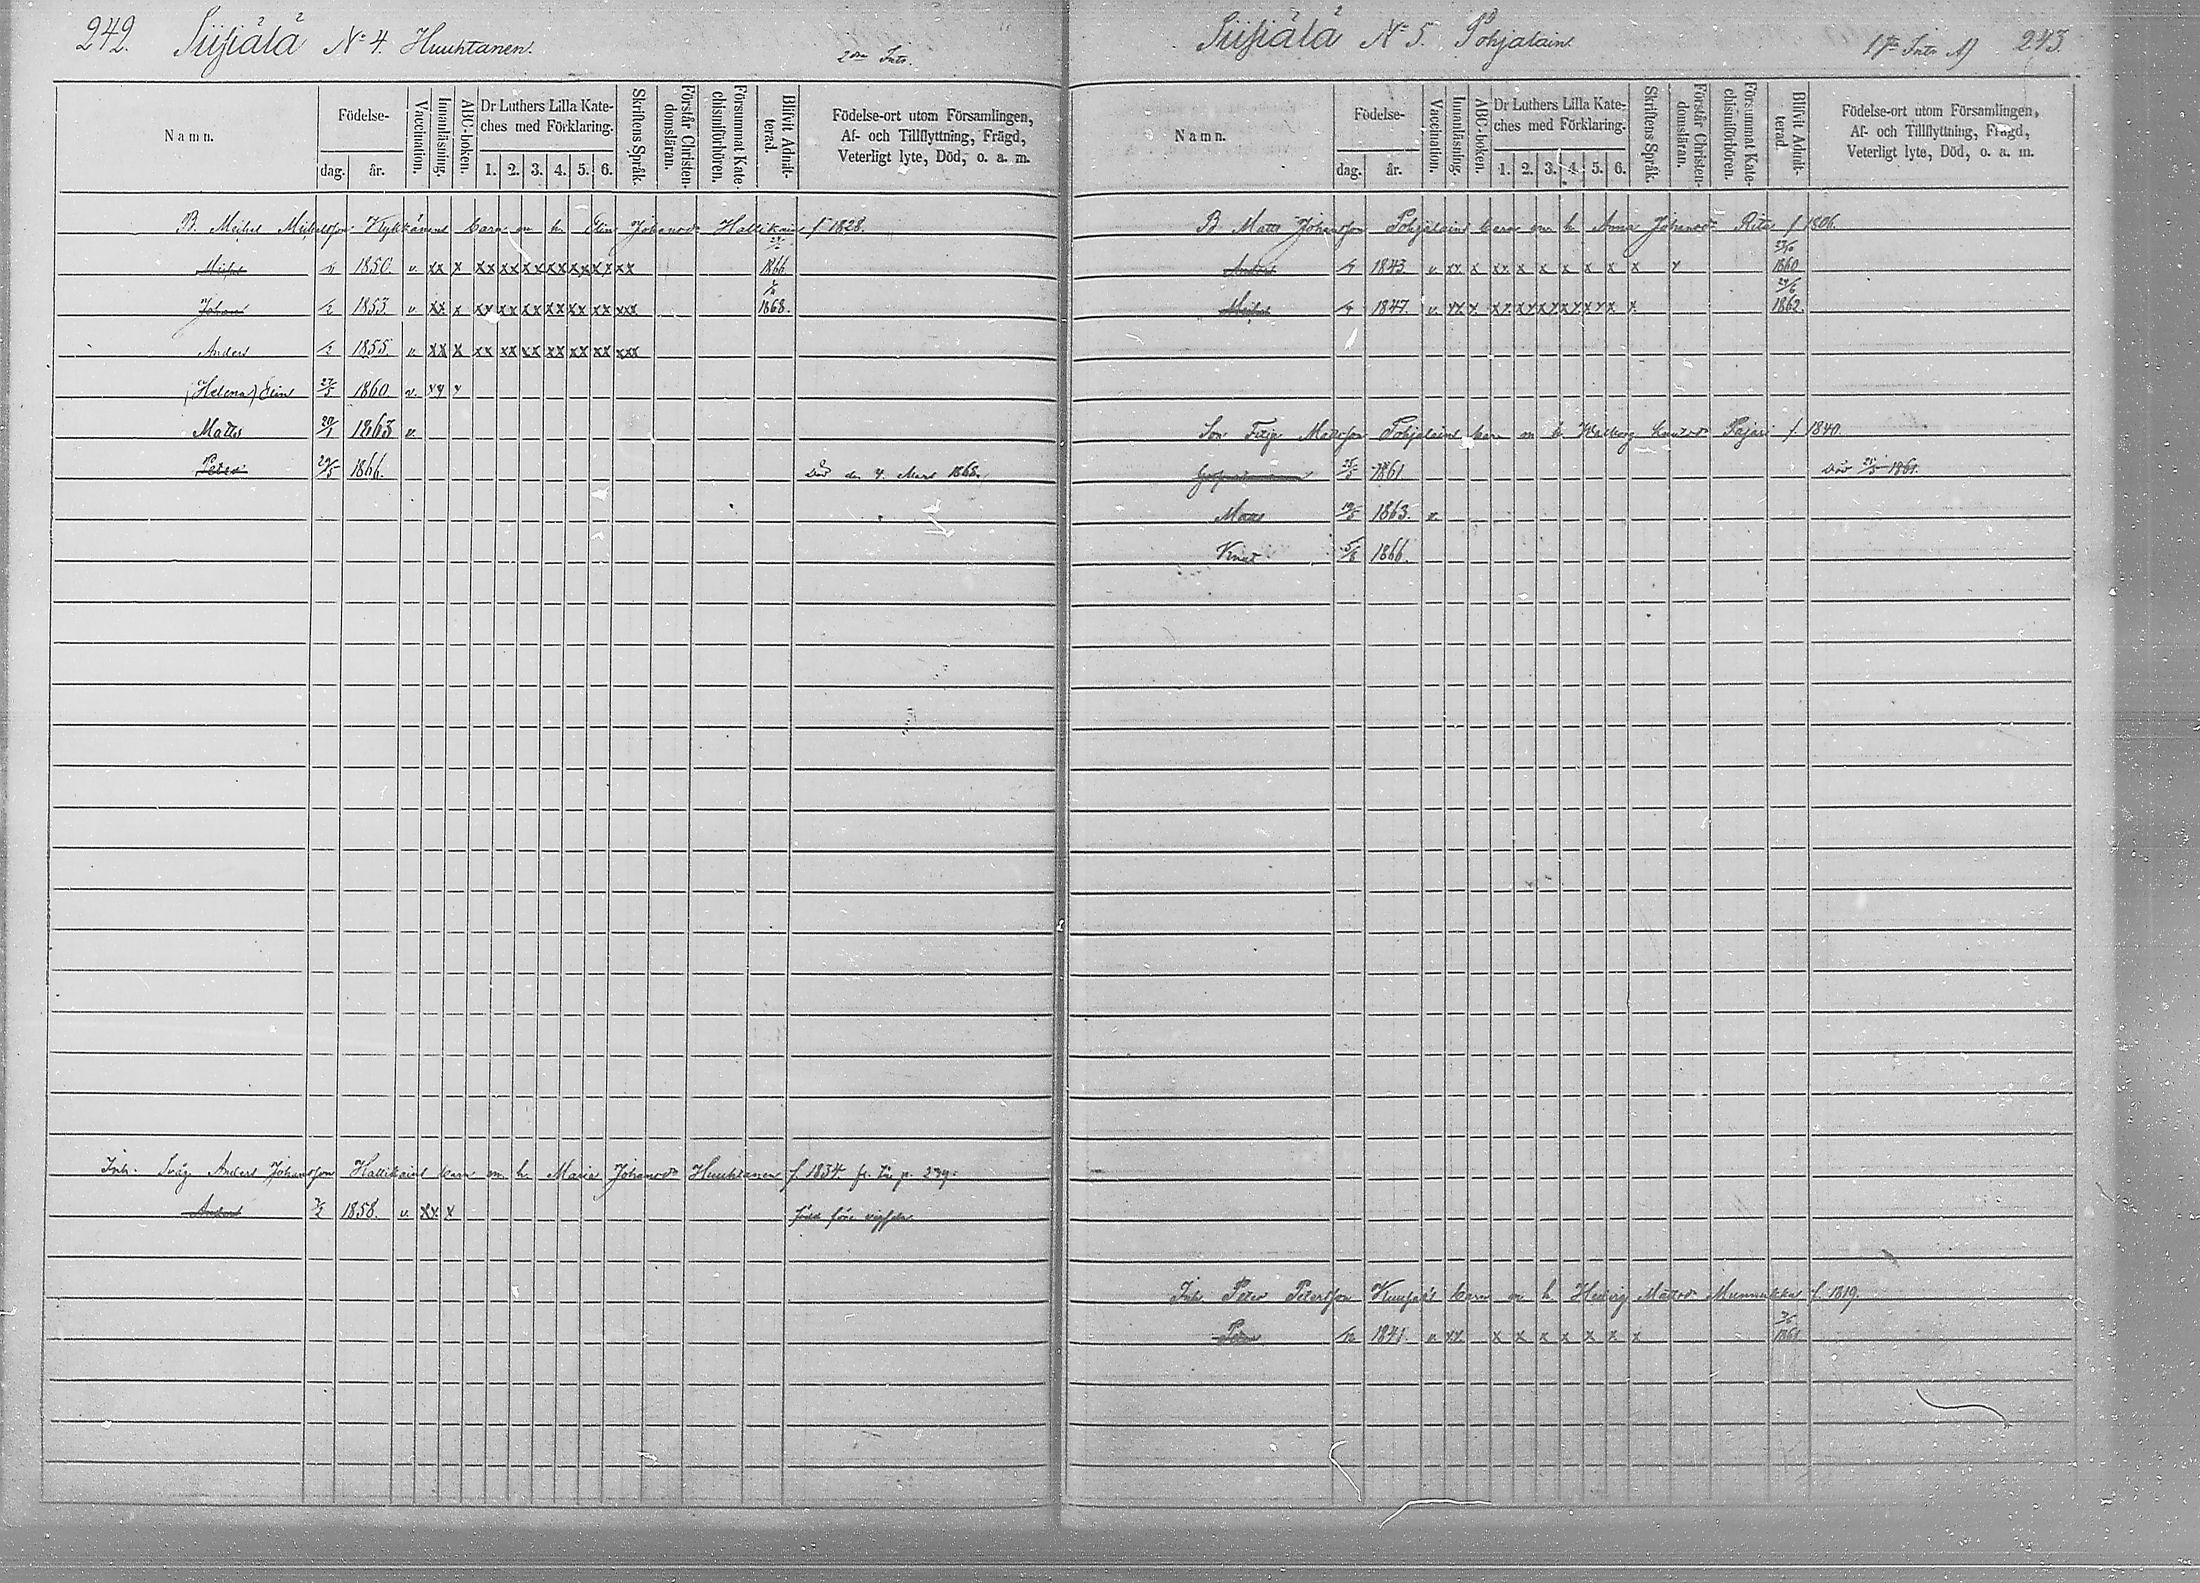 242. Siisiälä No 4. Huuhtanen. 2dra Intr.
Namn.
Födelse-
dag. år.
Vaccination.
Innanläsning.
ABC-boken.
Dr Luthers Lilla Kate-
ches med Förklaring.
1. 2. 3. 4. 5. 6.
Skriftens Språk.
Förstår Christen-
domsläran.
Försummat Kate-
chismiförhören.
Blifvit Admit-
terad.
Födelse-ort utom Församlingen,
Af- och Tillflyttning, Frägd,
Veterligt lyte, Död, o. a. m.
B. Michel Michelsson Kykkänens barn m. h. Elin Johansdr Hallikain f 1828.
Michel 1850. v. xx x xx xx xx xx xx xx xx 1866
Johan 1853. v. xx x xx xx xx xx xx xx xxx 1868.
Anders 1855. v. xx x xx xx xx xx xx xx xxx
(Helena) Elin 27/5 1860 v. xx x
Matts 20/1 1863 v.
Peter 29/5 1866. Död den 4. Mars 1868.
Inh. Svåg. Anders Johansson Hallikains barn m. h. Maria Johansdr Huuhtanen f. 1834. p. 239.
Anders 1858. v. xx x född före
Siisiälä No 5. Pohjalain. 243
Namn.
Födelse-
dag. år.
Vaccination.
Innanläsning.
ABC-boken.
Dr Luthers Lilla Kate-
ches med Förklaring.
1. 2. 3. 4. 5. 6.
Skriftens Språk.
Förstår Christen-
domsläran.
Försummat Kate-
chismiförhören.
Blifvit Admit-
terad.
Födelse-ort utom Församlingen,
Af- och Tillflyttning, Frägd,
Veterligt lyte, Död, o. a. m.
B. Matts Johansson Pohjalains barn m h Anna Johansdr f 1806.
Anders 1843. v. xx x xx x x x x x x x 1860
Michel 1847. v. xx x xx xx xx xx xx x x 24/6 1862.
Son Matsson Pohjalains barn m h Walborg Knutsdr Pajari f 1840.
25/5 1861. Död 25/5 1861.
Matts 1863. v.
Knut 5/6 1866.
Inh. Peter Petersson barn m h Hedvig Mattsdr Munnukka f. 1819.
Peter 1841. v. xx x x x x x x x 1861